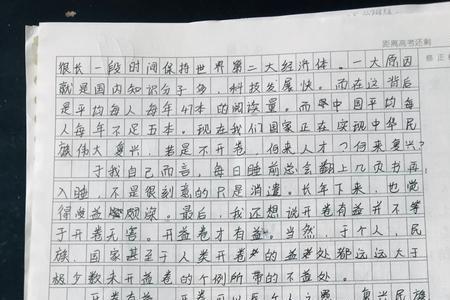 距离高考还剩
很长一段时间保持世界第二大经济体。一大原因
就是国内知识分子多，科技发展快。而在这背后
是平均每人每年47本的阅读量。而中国平均每
人每年不足五本。现在我们国家正在实现中华民
族伟大复兴，若是不开卷，何来人才？何来复兴？
于我自己而言，每日睡前总会翻上几页书再
入睡，不是很刻意的只是消遣。长年下来，也觉
得受益颇深。最后，我还想说开卷有益并不等
于开卷无害。开益卷才有益。当然，于个人，民
族，国家甚至于人类开卷的益处都远远大于
极少数未开益卷的个例所带的不益处。